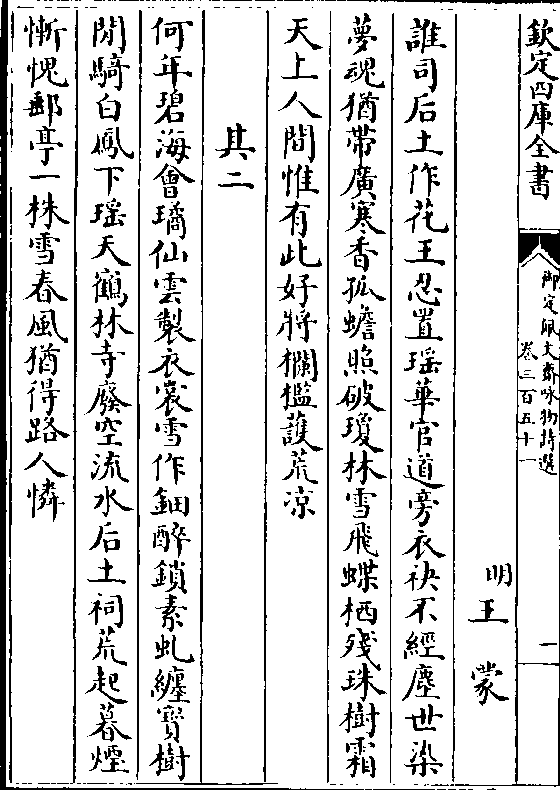 欽定四庫全書
御定佩文齋咏物詩選
卷三百五十一
二
明王蒙
誰司后土作花王忍置瑶華官道旁衣袂不經塵世染
夢魂猶帶廣寒香孤蟾照破瓊林雪飛蝶栖殘珠樹霜
天上人間惟有此好將欄檻護荒凉
其二
何年碧海會璚仙雲製衣裳雪作鈿醉鎖素虬纏寳樹
閒騎白鳳下瑶天鶴林寺廢空流水后土祠荒起暮煙
慚愧郵亭一株雪春風猶得路人憐